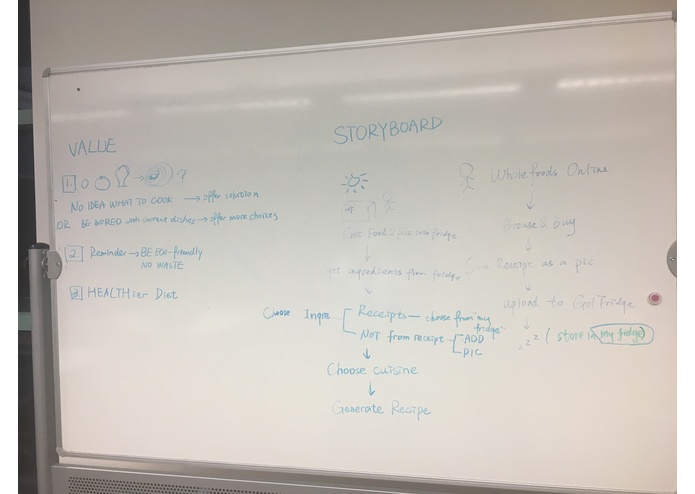 VALUE
1. → ?
NO IDEA WHAT TO COOK → offer solution
OR BE BORED with current dishes → offer more choices
2. Reminder → BE Eco-friendly
NO WASTE
3. HEALTHier Diet
STORYBOARD
Get Food & put into fridge
get ingredients from fridge
Choose Ingre
Receipts — choose from my fridge.
NOT from receipt
ADD
PIC
Choose cuisine
Generate Recipe
Wholefoods Online
Browse & Buy
Receipt as a pic
upload to Go!Fridge
zzz ( store in my fridge)